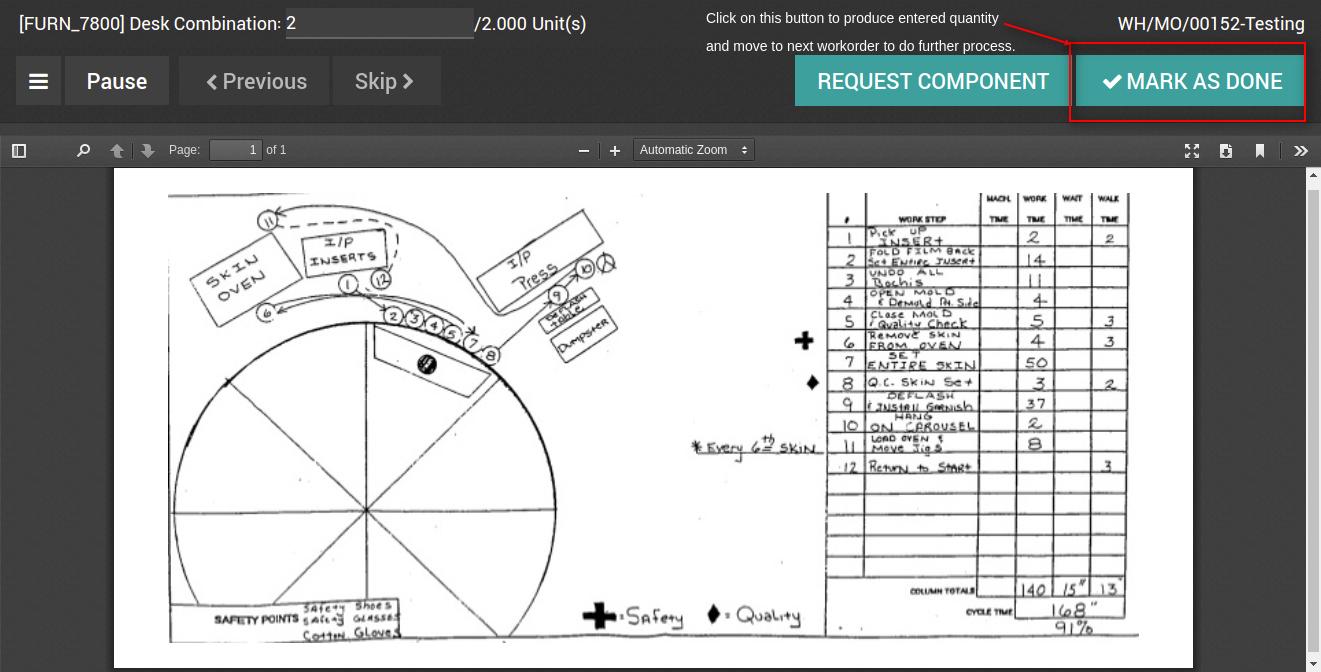 [FURN_7800] Desk Combination: 2 /2.000 Unit(s)
Click on this button to produce entered quantity
and move to next workorder to do further process.
WH/MO/00152-Testing
Pause
Previous
Skip
REQUEST COMPONENT
MARK AS DONE
Page: 1 of 1
Automatic Zoom
11
SKIN
OVEN
I/P
INSERTS
1
12
6
2
3
4
5
7
8
I/P
Press
9
10
DEFLASH
table
DUMPSTER
SAFETY POINTS
SAfety Shoes
SAfety GLASSES
Cotton Gloves
= Safety
= Quality
* Every 6th SKIN
# WORK STEP MACH. TIME WORK TIME WAIT TIME WALK TIME
1 Pick UP INSERt 2 2
2 FOLD FILM BACK Set ENTIRE INSERt 14
3 UNDO ALL Bachis 11
4 OPEN MOLD & Demold Pt. Side 4
5 Close MOLD & Quality Check 5 3
6 Remove SKIN FROM OVEN 4 3
7 SET ENTIRE SKIN 50
8 Q.C. SKIN Set 3 2
9 DEFLASH & INSTALL GARNISH 37
10 HANG ON CAROUSEL 2
11 LOAD OVEN & Move Jigs 8
12 Return to START 3
COLUMN TOTALS 140 15" 13
CYCLE TIME 168"
91%